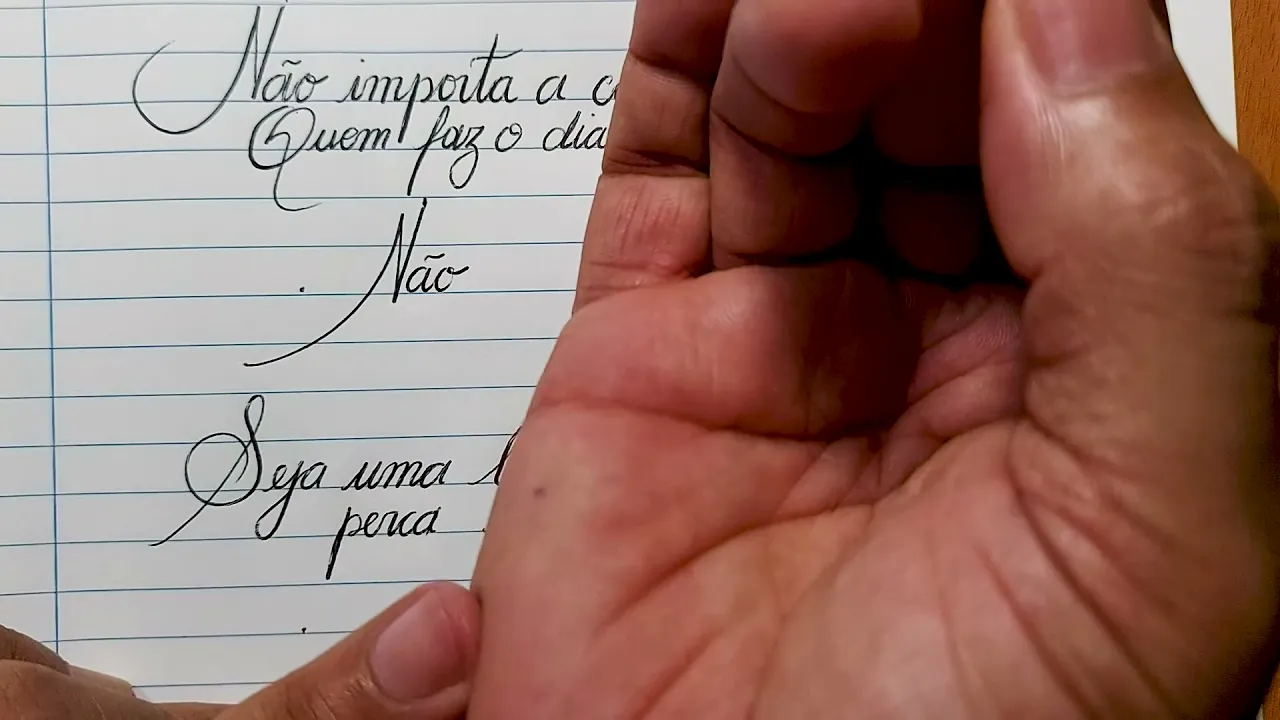 Não importa a c
Quem faz o dia
Não
Seja uma
perca